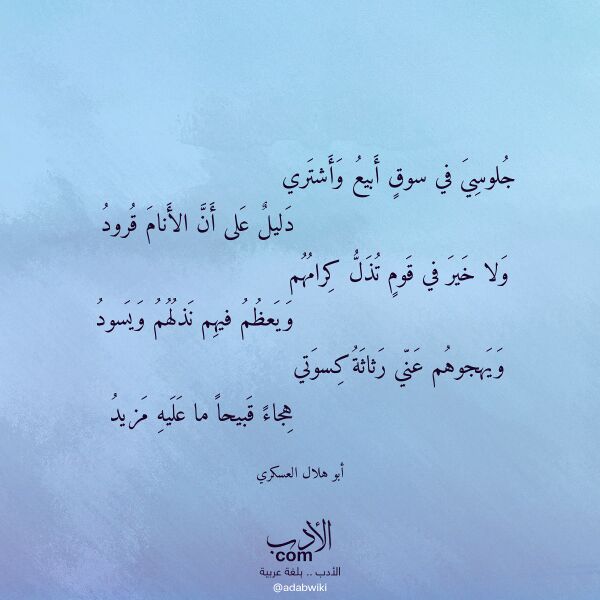 جُلوسِيَ في سوقٍ أَبيعُ وَأَشتَري
دَليلٌ عَلى أَنَّ الأَنامَ قُرودُ
وَلا خَيرَ في قَومٍ تُذَلُّ كِرامُهُم
وَيَعظُمُ فيهِم نَذلُهُمُ وَيَسودُ
وَيَهجوهُم عَنّي رَثاثَةُ كِسوَتي
هِجاءً قَبيحاً ما عَلَيهِ مَزيدُ
أبو هلال العسكري
الأدب
com
الأدب .. بلغة عربية
@adabwiki